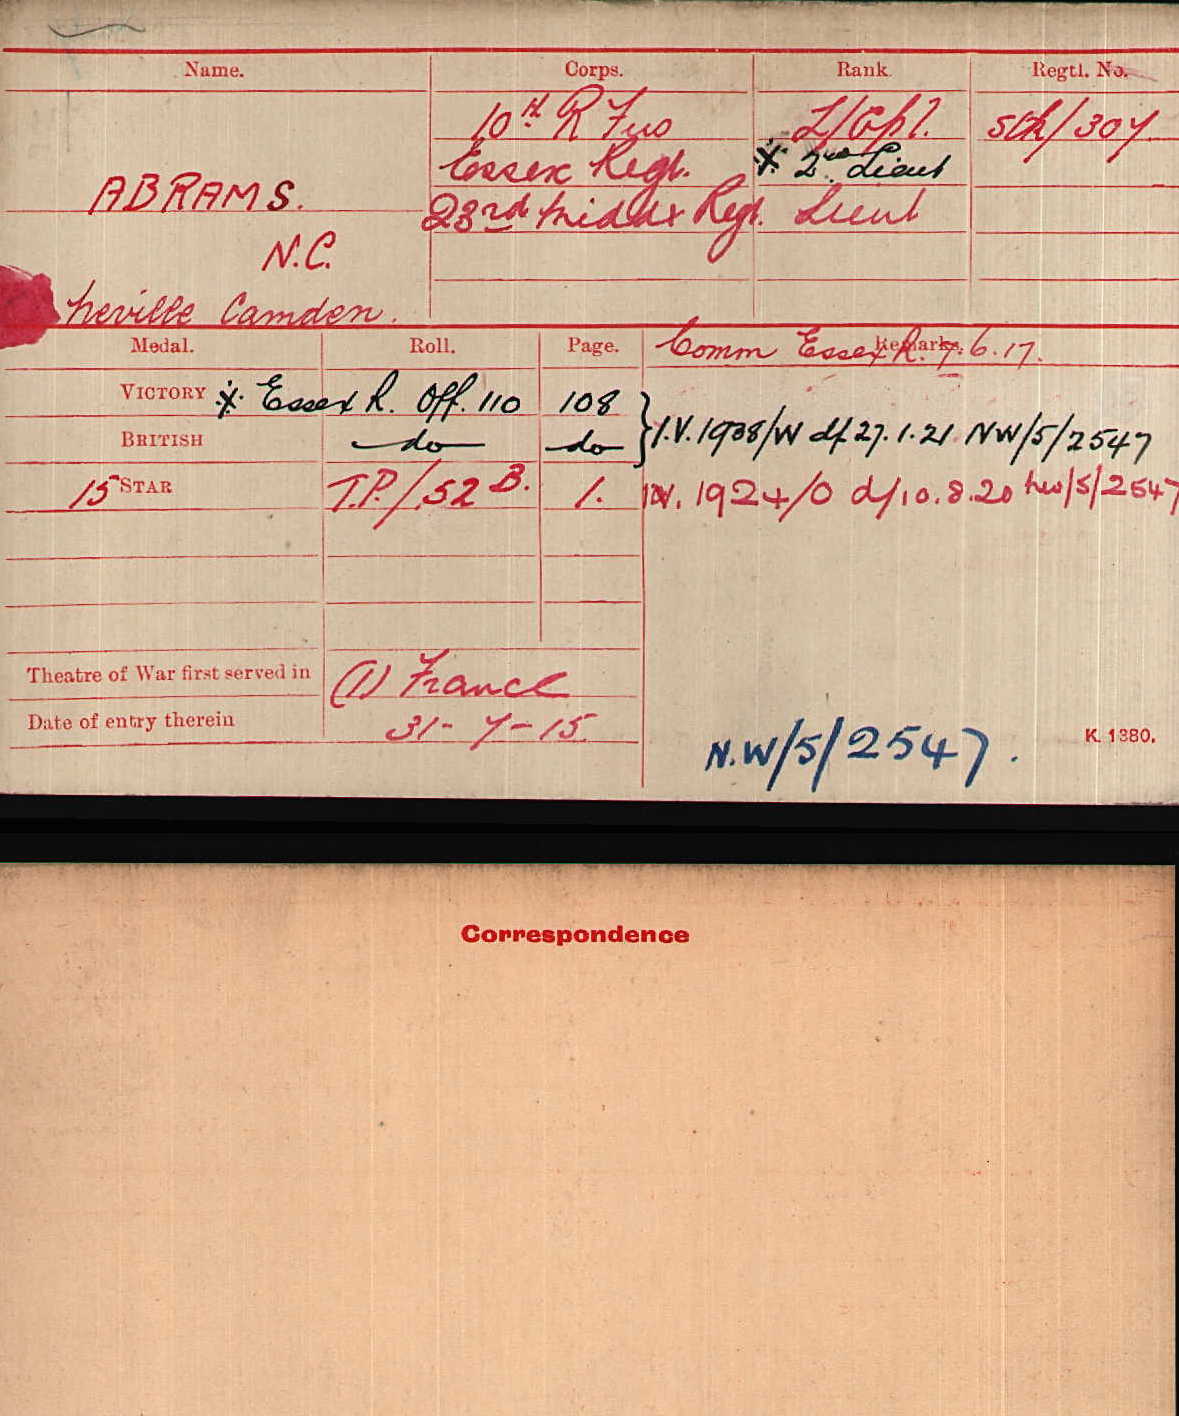 Name. Corps. Rank. Regtl. No.
10th R Fus L/Cpl. Stk/307
Essex Regt. ※ 2nd Lieut
ABRAMS. 23rd Middx Regt. Lieut
N.C.
Neville Camden.
Medal. Roll. Page. Remarks.
Comm Essex R. 7.6.17.
VICTORY ※ Essex R. Off. 110 108
BRITISH do do } I.V. 1938/W d/ 27.1.21 NW/5/2547
15 STAR T.P./52 B. 1. IV. 1924/O d/10.8.20 NW/5/2547
Theatre of War first served in (1) France
Date of entry therein 31-7-15.
N.W/5/2547.
K. 1380.
Correspondence